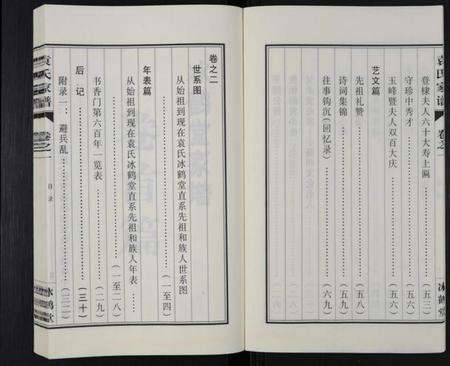 袁氏家谱
卷之一
冰鹤堂
登棣夫人六十大寿上匾……(五三)
守珍中秀才……(五六)
玉峰暨夫人双百大庆……(五六)
艺文篇
先祖礼赞……(五八)
诗词集锦……(五九)
往事钩沉(回忆录)……(六九)
卷之二
世系图
从始祖到现在袁氏冰鹤堂直系先祖和族人世系图……(一至四)
年表篇
从始祖到现在袁氏冰鹤堂直系先祖和族人年表……(一至二八)
书香门第六百年一览表……(二九)
后记……(三十)
附录一:避兵乱……(三二)
袁氏家谱
卷之一
目录
冰鹤堂